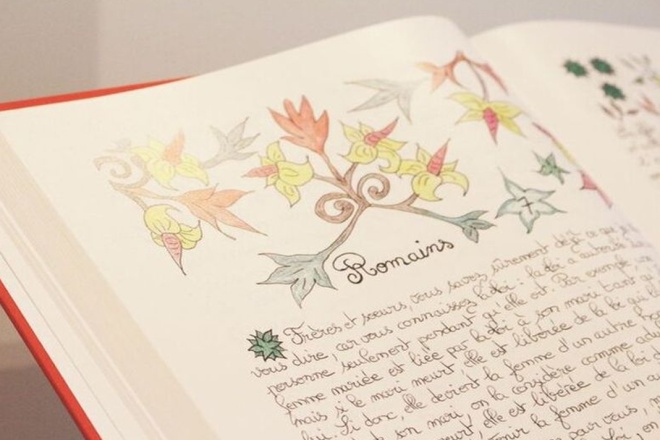 Romains
Frères et sœurs, vous savez sûrement déjà ce que
vous dire, car vous connaissez la loi : la loi a autorité
personne seulement pendant qu'elle est Par exemple,
femme mariée est liée par la loi à son mari tant
mais si le mari meurt, elle est libérée de la loi qui
lui. Si donc, elle devient la femme d'un autre
son mari, on la considère comme
meurt, elle est libérée de la loi
la femme d'un
pour vous,